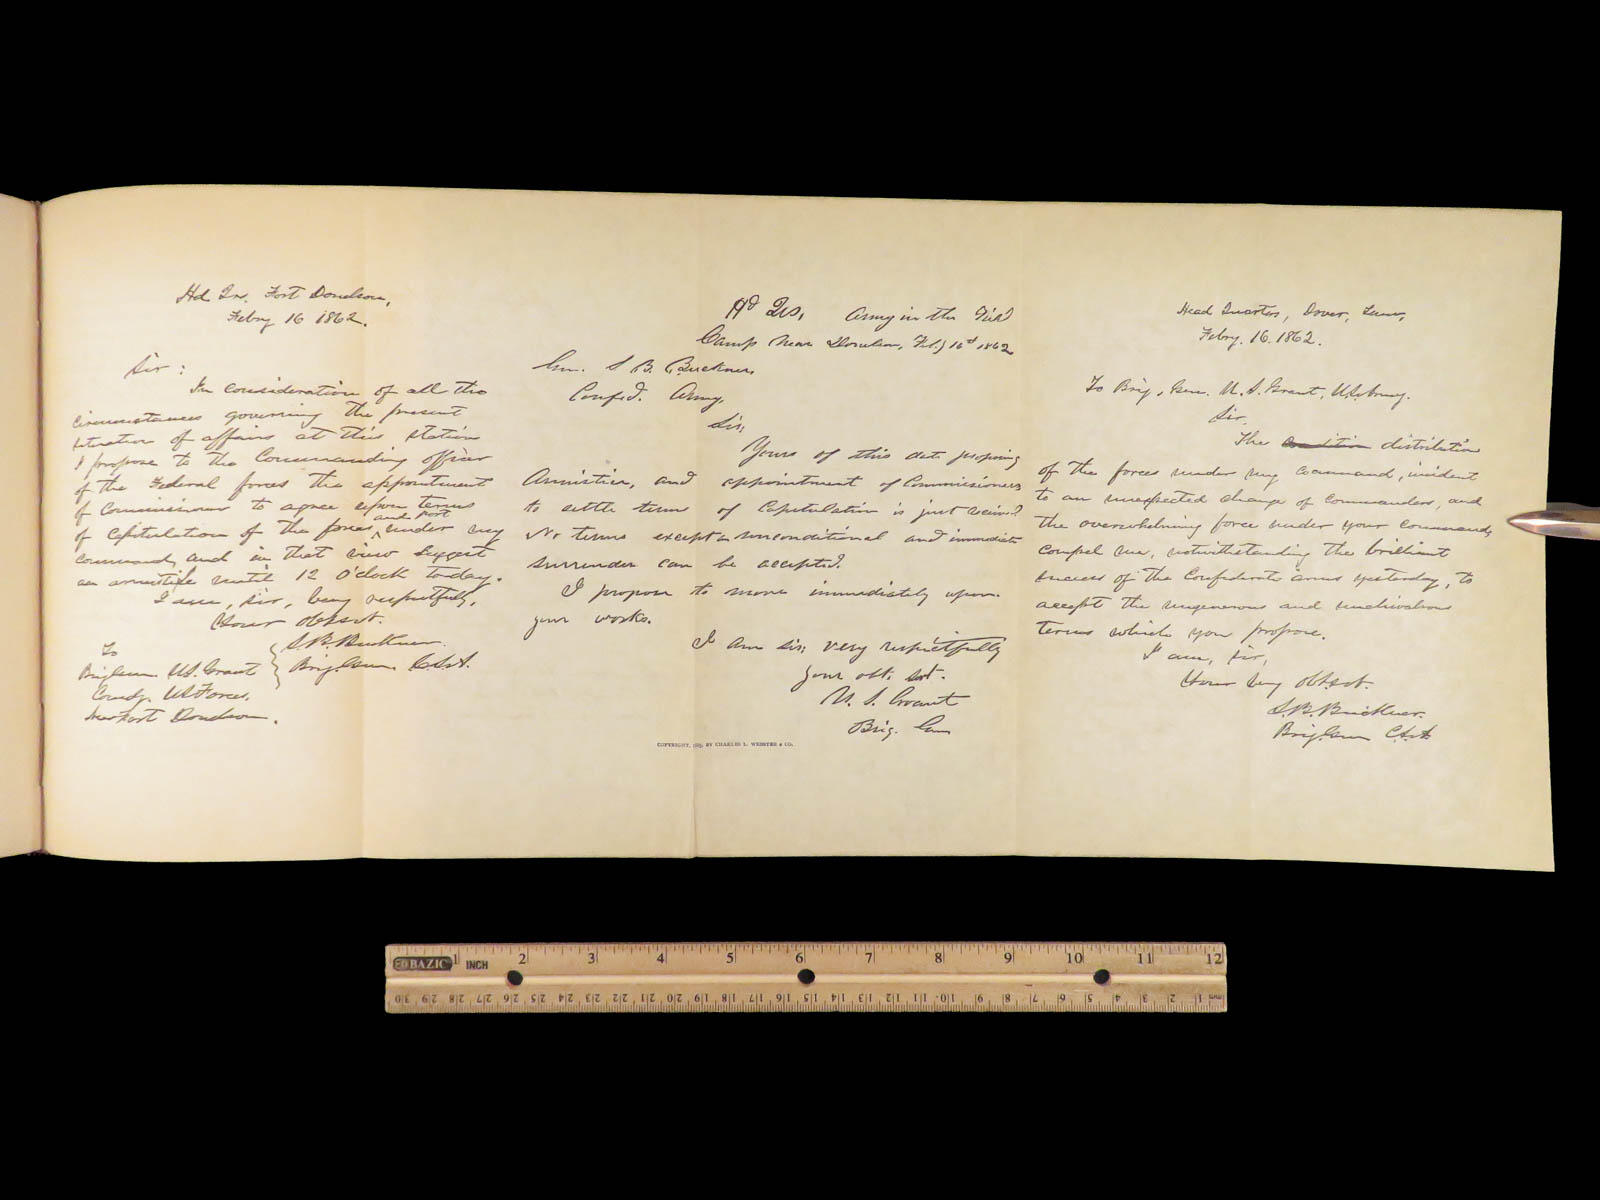 Hd Qrs. Fort Donelson,
Febry 16 1862.
Sir:
In consideration of all the
circumstances governing the present
situation of affairs at this station
I propose to the Commanding officer
of the Federal forces the appointment
of Commissioners to agree upon terms
of capitulation of the forces and Fort under my
command, and in that view suggest
an armistice until 12 O'clock to-day.
I am, sir, very respectfully,
Your obt. svt.
S.B. Buckner
Brig. Gen. C.S.A.
To
Brig Gen U.S. Grant
Comdg. U.S. Forces,
Near Fort Donelson.
Hd Qrs, Army in the Field
Camp Near Donelson, Feb.y 16th 1862
Gen. S. B. Buckner,
Confed. Army,
Sir;
Yours of this date proposing
Armistice, and appointment of Commissioners
to settle terms of Capitulation is just received
No terms except an unconditional and immediate
surrender can be accepted.
I propose to move immediately upon
your works.
I am sir; very respectfully
your obt. svt.
U. S. Grant
Brig. Gen
COPYRIGHT, 1885, BY CHARLES L. WEBSTER & CO.
Head Quarters, Dover, Tenn,
Febry. 16. 1862.
To Brig. Gen. U. S. Grant, U.S. Army.
Sir,
The condition distribution
of the forces under my command, incident
to an unexpected change of commanders, and
the overwhelming force under your command,
compel me, notwithstanding the brilliant
success of the Confederate arms yesterday, to
accept the ungenerous and unchivalrous
terms which you propose.
I am, sir,
Your very obt. svt.
S. B. Buckner.
Brig. Gen C.S.A
BAZIC INCH 1 2 3 4 5 6 7 8 9 10 11 12
30 29 28 27 26 25 24 23 22 21 20 19 18 17 16 15 14 13 12 11 10 9 8 7 6 5 4 3 2 1 mm